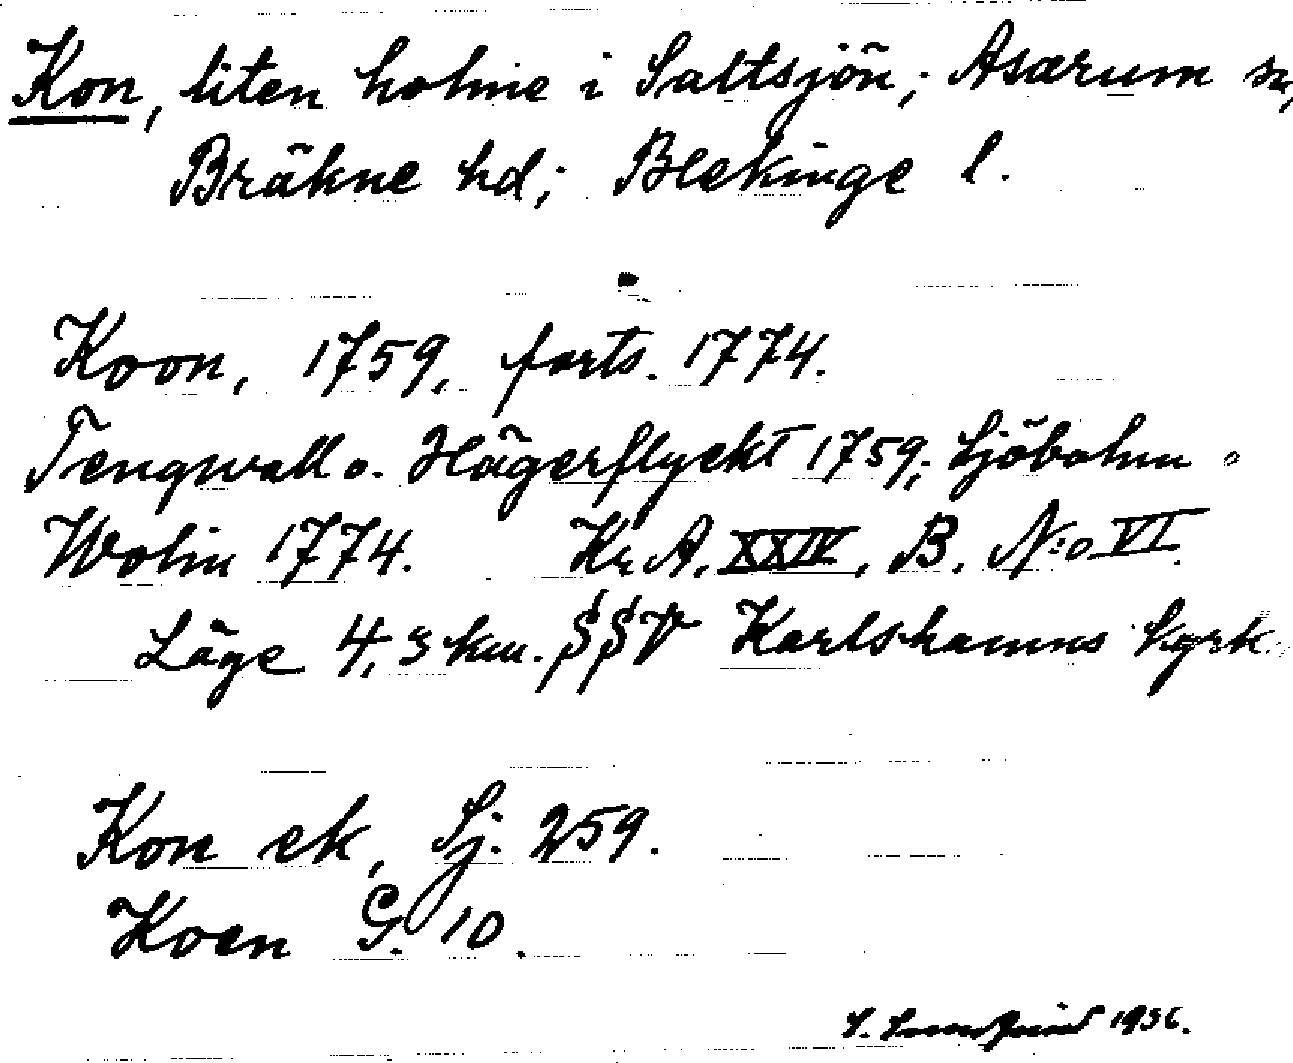 Kon, liten holme i Saltsjön; Asarum sn,
Bräkne hd; Blekinge l.
Koon, 1759, forts. 1774.
Tengwall o. Hägerflyckt 1759; Sjöbohm o
Wolin 1774. Kr. A. XXIV, B. N:o VI.
Läge 4,3 km. SSV Karlshamns kyrk
Kon ek, Sj. 259.
Koen G. 10.
1936.